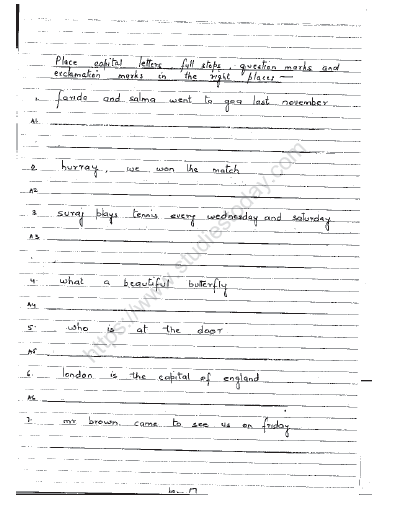 Place capital letters, full stops, question marks and
exclamation marks in the right places —
1. farida and salma went to goa last november
A1.
2. hurray, we won the match
A2
3. suraj plays tennis every wednesday and saturday
A3
4. what a beautiful butterfly
A4
5. who is at the door
A5
6. london is the capital of england
A6
7. mr brown came to see us on friday
https://www.studiestoday.com